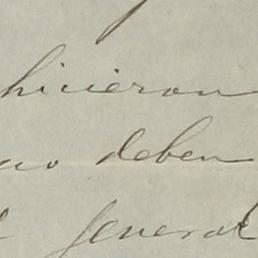 hicieron
no deben
general